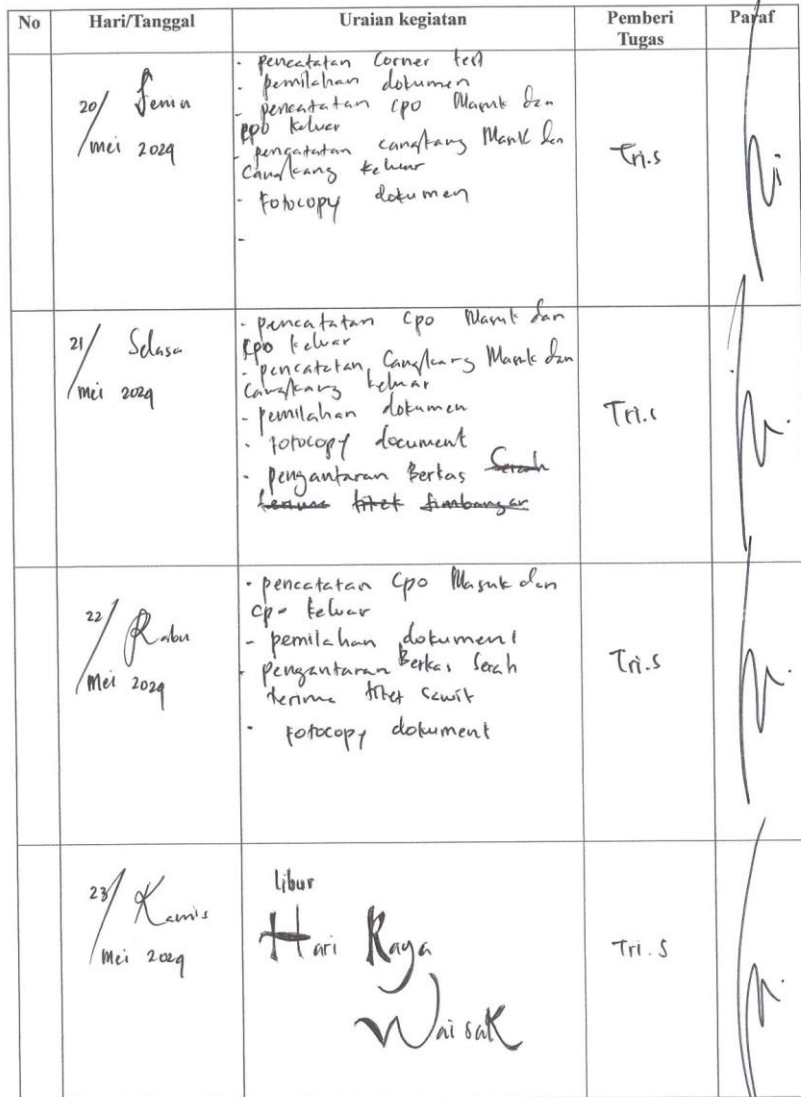 No Hari/Tanggal Uraian kegiatan Pemberi Tugas Paraf
20/ Senin
mei 2024
- pencatatan Corner test
- pemilahan dokumen
- pencatatan cpo Masuk dan
cpo keluar
- pencatatan cangkang Masuk dan
Cangkang keluar
- Fotocopy dokumen
-
Tri.s
21/ Selasa
mei 2024
- pencatatan Cpo Masuk dan
cpo keluar
- pencatatan Cangkang Masuk dan
cangkang keluar
- pemilahan dokumen
- fotocopy document
- pengantaran Berkas Serah
terima tiket timbangan
Tri.s
22/ Rabu
Mei 2024
- pencatatan Cpo Masuk dan
cpo keluar
- pemilahan dokument
- pengantaran Berkas Serah
terima tiket sawit
- fotocopy dokument
Tri.s
23/ Kamis
Mei 2024
libur
Hari Raya
Waisak
Tri.S